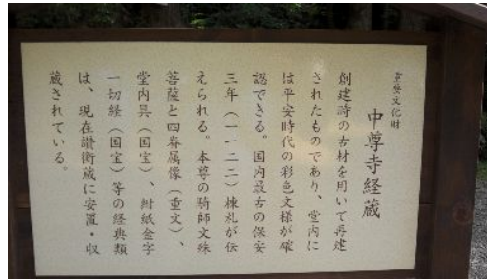 重要文化財
中尊寺経蔵
創建時の古材を用いて再建
されたものであり、堂内に
は平安時代の彩色文様が確
認できる。国内最古の保安
三年(一一二二)棟札が伝
えられる。本尊の騎師文殊
菩薩と四眷属像(重文)、
堂内具(国宝)、紺紙金字
一切経(国宝)等の経典類
は、現在讃衡蔵に安置・収
蔵されている。